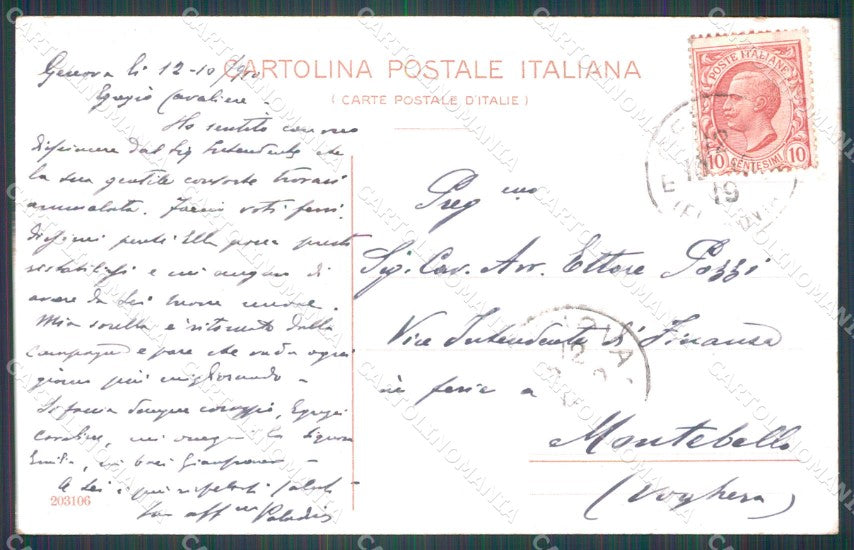 CARTOLINA POSTALE ITALIANA
( CARTE POSTALE D'ITALIE )
Genova li 12-10
Egregio Cavaliere.
Ho sentito con
dispiacere dal Sig Intendente che
la sua gentile consorte trovasi
ammalata. Faccio voti
perché Ella possa presto
ristabilirsi e mi auguro di
avere da Lei buone nuove.
Mia sorella è ritornata dalla
campagna e pare che vada ogni
giorno più migliorando -
Si faccia dunque coraggio, Egregio
Cavaliere, mi la Signora
Emilia, mi baci
A Lei i più rispettosi saluti
Suo aff mo
203106
POSTE ITALIANE
10 CENTESIMI 10
19
Preg mo
Sig. Cav. Avv. Ettore Pozzi
Vice Intendente di Finanza
in ferie a
Montebello
(Voghera)
CARTOLINOMANIA